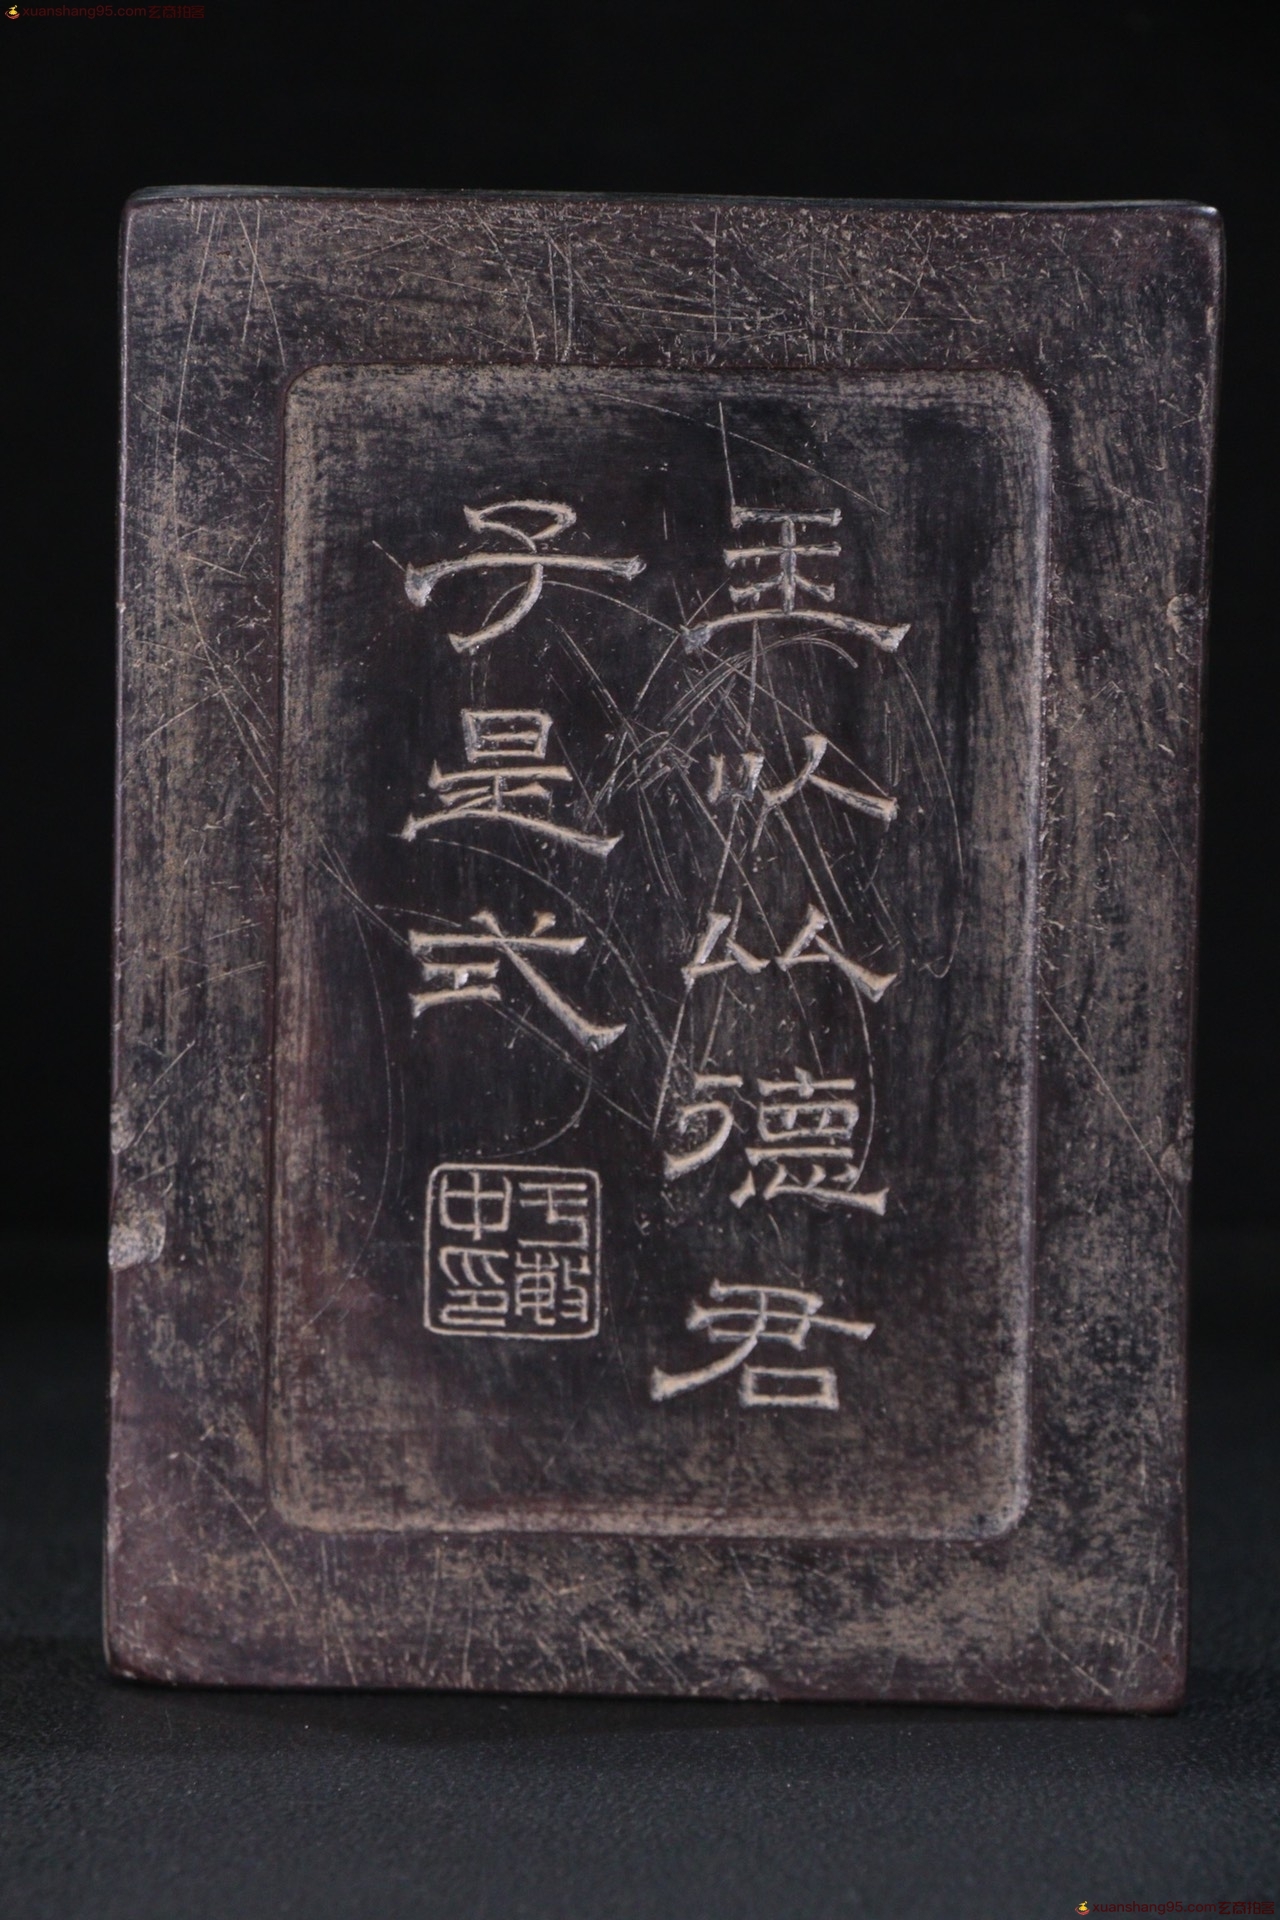 xuanshang95.com玄商拍客
玉以比德君
子是式
于敏
中印
xuanshang95.com玄商拍客